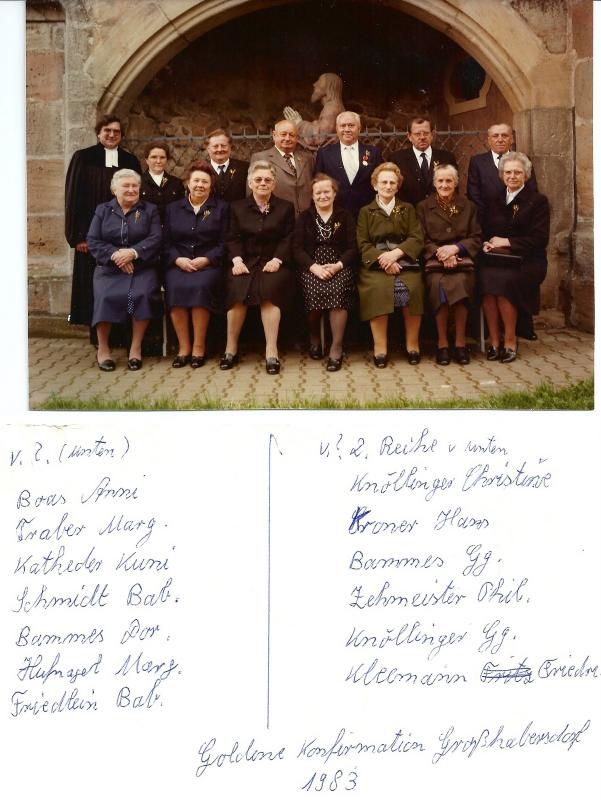 v. l. (unten)
Boas Anni
Traber Marg.
Katheder Kuni
Schmidt Bab.
Bammes Dor.
Hufnagel Marg.
Friedlein Bab.
v. l. 2. Reihe v unten
Knöllinger Christine
Kroner Hans
Bammes Gg.
Zehmeister Phil.
Knöllinger Gg.
Kleemann Fritz Friedr.
Goldene Konfirmation Großhabersdorf
1983